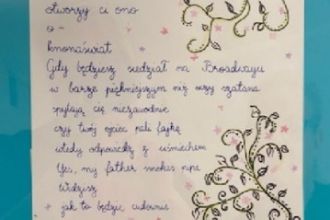 otworzy ci ono
o-
knonaświat
Gdy będziesz siedział na Broadwayu
w barze piękniejszym niż oczy szatana
spytają cię niezawodnie
czy twój ojciec pali fajkę
wtedy odpowiedz z uśmiechem
Yes, my father smokes pipe
Widzisz
jak to będzie cudownie